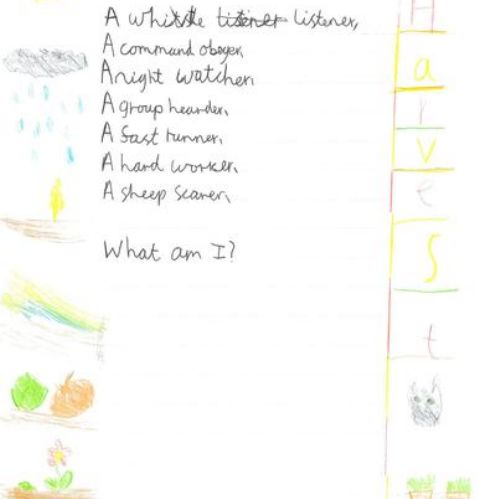 A whistle listener,
A command obeyer,
A night watcher,
A group hearder,
A fast runner,
A hard worker,
A sheep scarer,
What am I?
H
a
r
v
e
s
t